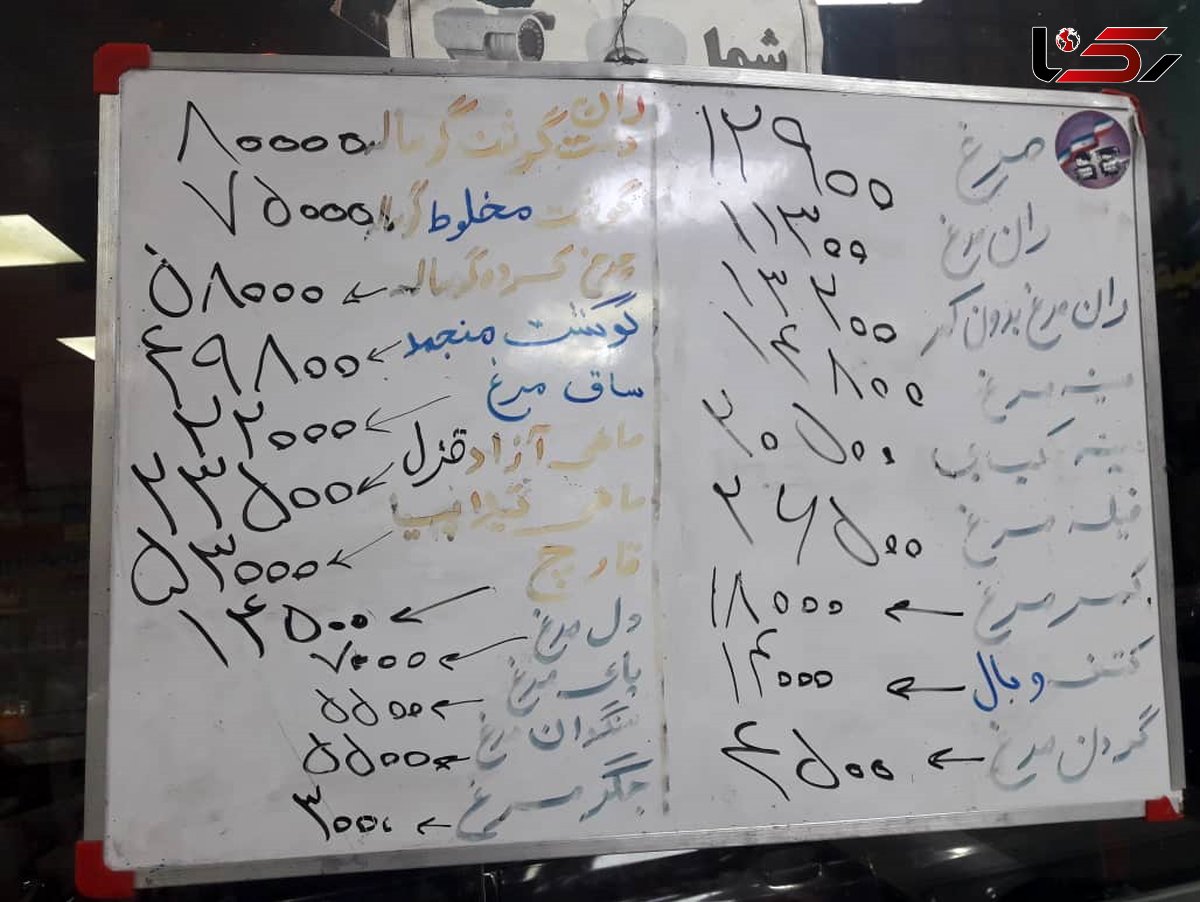 شما
رکنا
مرغ ۱۲۹۰۰
ران مرغ ۱۱۳۰۰
ران مرغ بدون کمر ۱۳۲۰۰
سینه مرغ ۱۴۸۰۰
سینه کبابی ۲۰۵۰۰
فیله مرغ ۲۶۵۰۰
مرغ ← ۱۸۰۰۰
کتف و بال ← ۱۴۰۰۰
گردن مرغ ← ۴۵۰۰
ران
دست گوشت گوساله ۸۰۰۰۰
گوشت مخلوط ۷۵۰۰۰
چرخ کرده گوساله ← ۵۸۰۰۰
گوشت منجمد ← ۴۹۸۰۰
ساق مرغ ← ۲۲۰۰۰
ماهی آزاد قزل ← ۲۳۵۰۰
ماهی تیلاپیا ← ۵۳۰۰۰
قارچ ← ۱۴۵۰۰
دل مرغ ← ۷۰۰۰
پای مرغ ← ۵۵۰۰
سنگدان مرغ ← ۵۵۰۰
جگر مرغ ← ۳۰۰۰